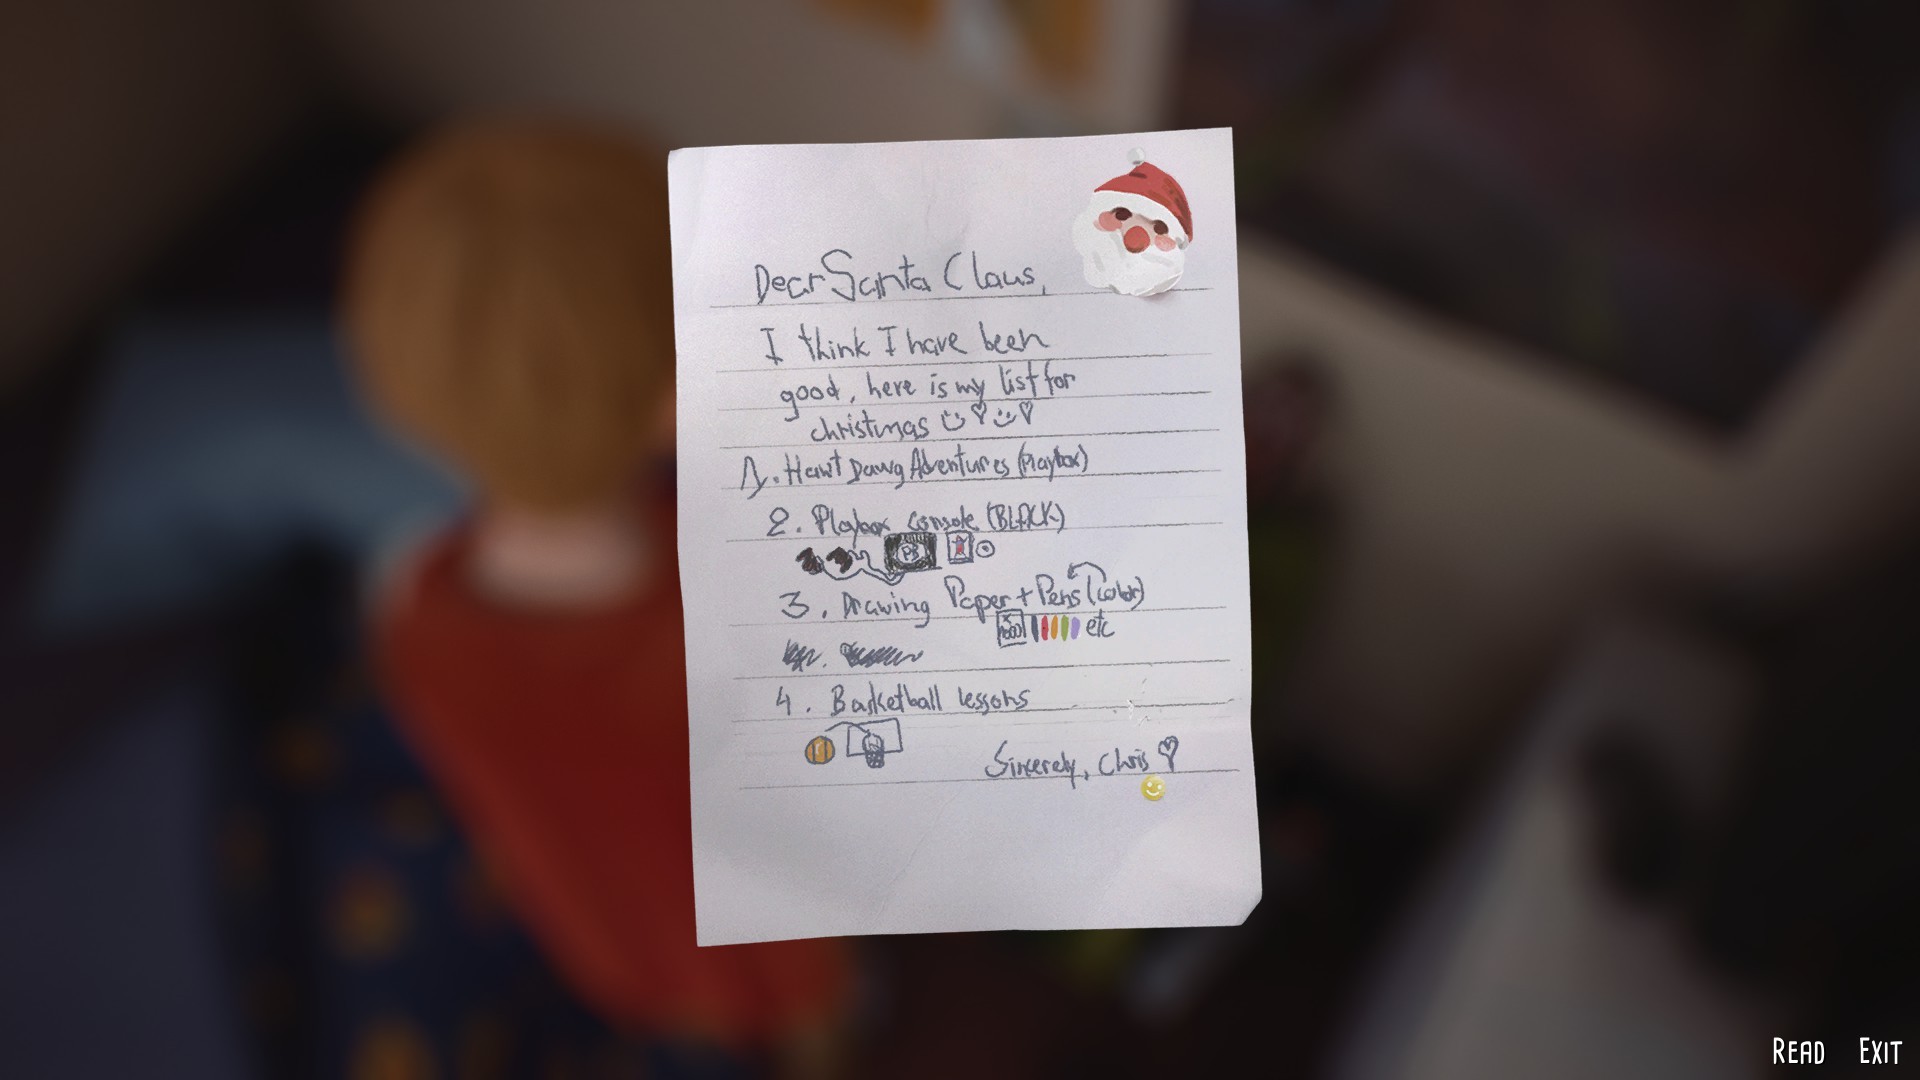 Dear Santa Claus,
I think I have been
good, here is my list for
christmas
1. Hawt Dawg Adventures (Playbox)
2. Playbox console (BLACK)
PB
3. Drawing Paper + Pens (color)
etc
4. Basketball lessons
Sincerely, Chris
READ EXIT